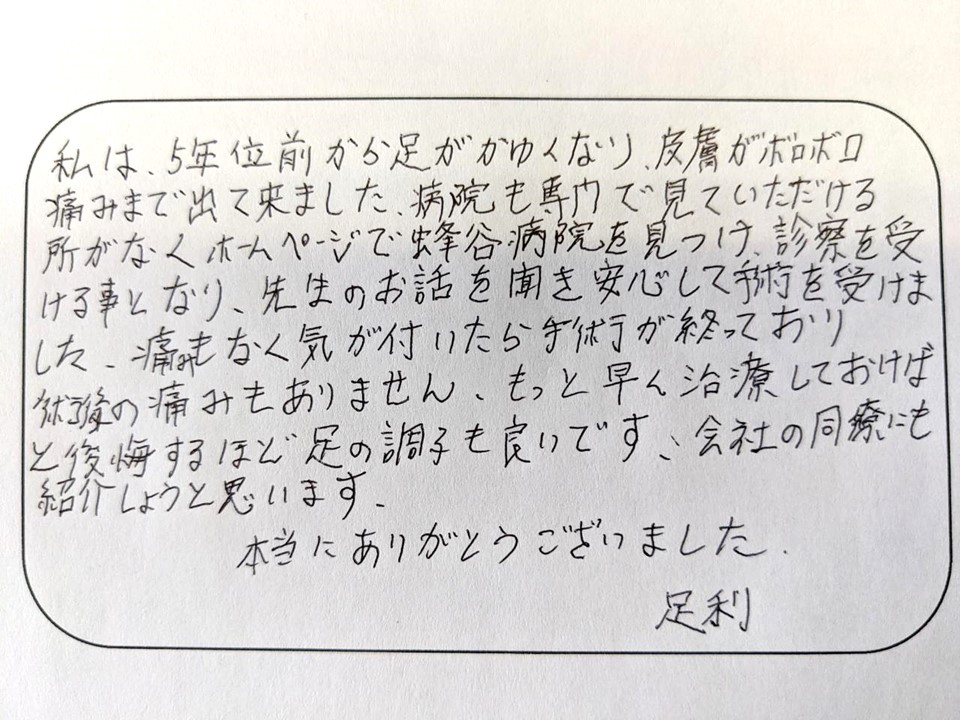 私は、5年位前から足がかゆくなり、皮膚がボロボロ
痛みまで出て来ました、病院も専門で見ていただける
所がなくホームページで蜂谷病院を見つけ、診察を受
ける事となり、先生のお話を聞き安心して手術を受けま
した、痛みもなく気が付いたら手術が終っており
術後の痛みもありません、もっと早く治療しておけば
と後悔するほど足の調子も良いです、会社の同療にも
紹介しようと思います、
本当にありがとうございました.
足利